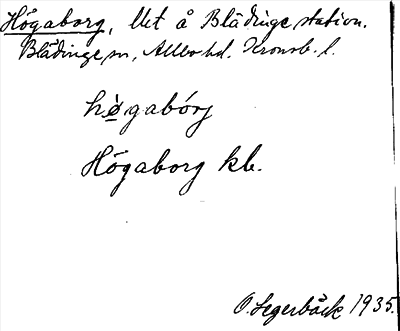 Högaborg, Ut å Blädinge station.
Blädinge sn, Allbo hd. Kronob. l.
hø̀gabórj
Högaborg kb.
O. Segerbäck 1935.